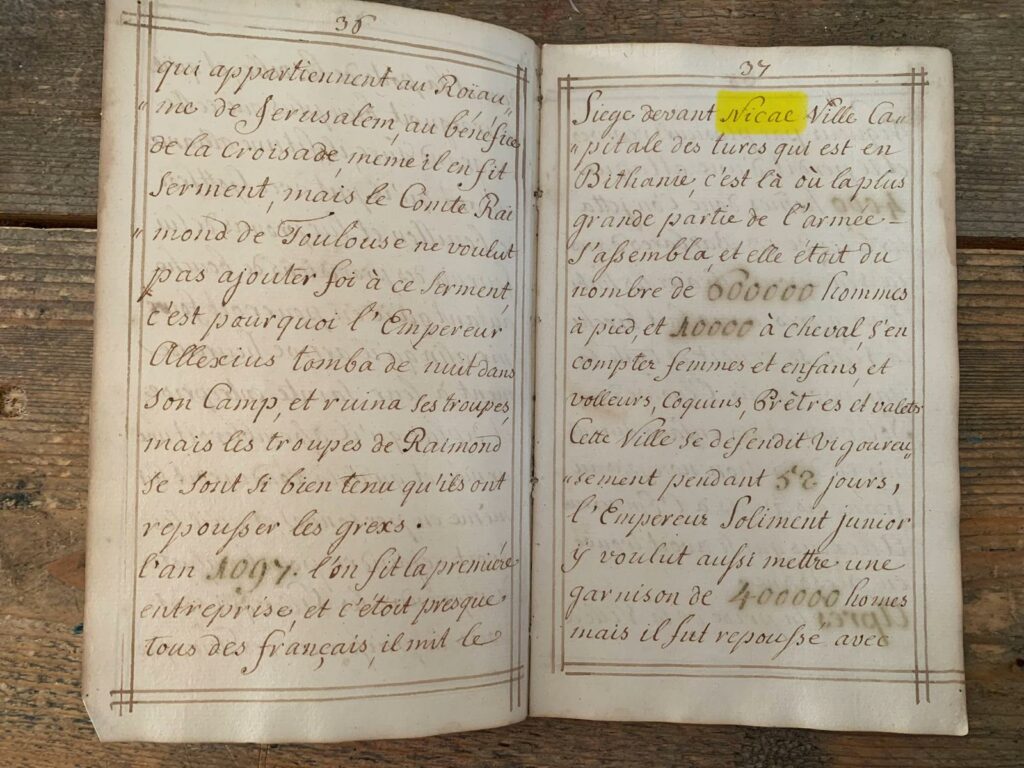 36
qui appartiennent au Roiau„
„me de Jerusalem, au bénéfice
de la croisade, même il en fit
serment, mais le Comte Rai
„mond de Toulouse ne voulut
pas ajouter foi à ce serment,
c'est pourquoi l'Empereur
Allexius tomba de nuit dans
son Camp, et ruina ses troupes,
mais les troupes de Raimond
se sont si bien tenu qu'ils ont
repousser les grexs.
l'an 1097. l'on fit la premiére
entreprise, et c'étoit presque
tous des français, il mit le
37
Siege devant Nicae Ville Ca„
„pitale des turcs qui est en
Bithanie, c'est là où la plus
grande partie de l'armée
s'assembla, et elle étoit du
nombre de 600000 hommes
à pied, et 10000 à cheval, s'en
compter femmes et enfans, et
volleurs, Coquins, Prêtres et valets
Cette Ville se defendit vigoureu„
„sement pendant 52 jours,
l'Empereur Soliment junior
ÿ voulut aussi mettre une
garnison de 400000 homes
mais il fut repousse avec